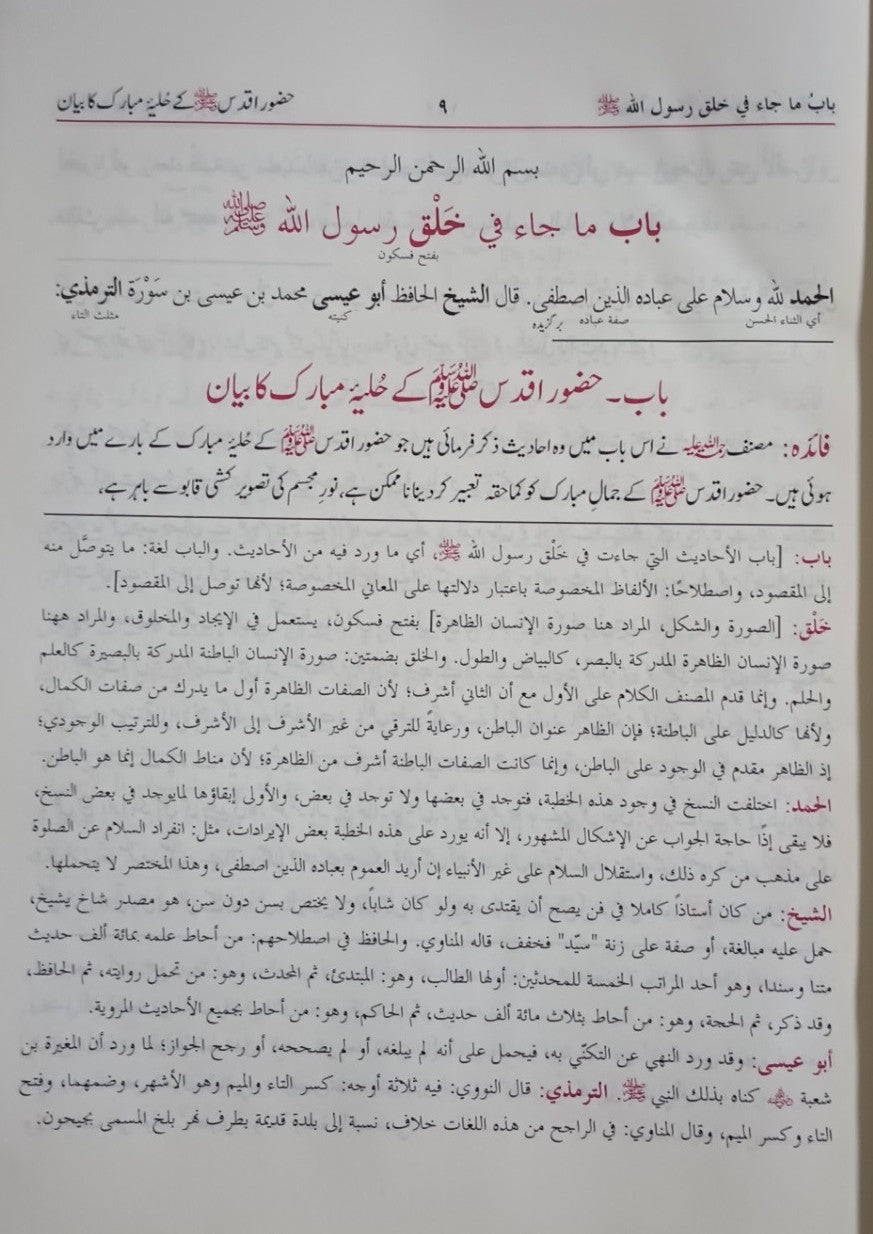 بابُ ما جاء في خلق رسول الله ﷺ ٩ حضور اقدس ﷺ کے حُلیۂ مبارک کا بیان
بسم الله الرحمن الرحيم
باب ما جاء في خَلْق رسول الله ﷺ
بفتح فسكون
الحمد لله وسلام على عباده الذين اصطفى. قال الشيخ الحافظ أبو عيسى محمد بن عيسى بن سَوْرَة الترمذي:
أي الثناء الحسن صفة عباده برگزیده كنيته مثلث التاء
باب۔ حضور اقدس ﷺ کے حُلیۂ مبارک کا بیان
فائدہ: مصنف رحمۃ اللہ علیہ نے اس باب میں وہ احادیث ذکر فرمائی ہیں جو حضور اقدس ﷺ کے حُلیۂ مبارک کے بارے میں وارد
ہوئی ہیں۔ حضور اقدس ﷺ کے جمالِ مبارک کو کماحقہ تعبیر کر دینا ناممکن ہے، نورِ مجسم کی تصویر کشی قابو سے باہر ہے،
باب: [باب الأحاديث التي جاءت في خَلْق رسول الله ﷺ، أي ما ورد فيه من الأحاديث. والباب لغة: ما يتوصَّل منه
إلى المقصود، واصطلاحًا: الألفاظ المخصوصة باعتبار دلالتها على المعاني المخصوصة؛ لأنها توصل إلى المقصود].
خَلْق: [الصورة والشكل، المراد هنا صورة الإنسان الظاهرة] بفتح فسكون، يستعمل في الإيجاد والمخلوق، والمراد ههنا
صورة الإنسان الظاهرة المدركة بالبصر، كالبياض والطول. والخلق بضمتين: صورة الإنسان الباطنة المدركة بالبصيرة كالعلم
والحلم. وإنما قدم المصنف الكلام على الأول مع أن الثاني أشرف؛ لأن الصفات الظاهرة أول ما يدرك من صفات الكمال،
ولأنها كالدليل على الباطنة؛ فإن الظاهر عنوان الباطن، ورعايةً للترقي من غير الأشرف إلى الأشرف، وللترتيب الوجودي؛
إذ الظاهر مقدم في الوجود على الباطن، وإنما كانت الصفات الباطنة أشرف من الظاهرة؛ لأن مناط الكمال إنما هو الباطن.
الحمد: اختلفت النسخ في وجود هذه الخطبة، فتوجد في بعضها ولا توجد في بعض، والأولى إبقاؤها لمايوجد في بعض النسخ،
فلا يبقى إذًا حاجة الجواب عن الإشكال المشهور، إلا أنه يورد على هذه الخطبة بعض الإيرادات، مثل: انفراد السلام عن الصلوة
على مذهب من كره ذلك، واستقلال السلام على غير الأنبياء إن أريد العموم بعباده الذين اصطفى، وهذا المختصر لا يتحملها.
الشيخ: من كان أستاذاً كاملا في فن يصح أن يقتدى به ولو كان شاباً، ولا يختص بسن دون سن، هو مصدر شاخ يشيخ،
حمل عليه مبالغة، أو صفة على زنة "سيّد" فخفف، قاله المناوي. والحافظ في اصطلاحهم: من أحاط علمه بمائة ألف حديث
متنا وسندا، وهو أحد المراتب الخمسة للمحدثين: أولها الطالب، وهو: المبتدئ، ثم المحدث، وهو: من تحمل روايته، ثم الحافظ،
وقد ذكر، ثم الحجة، وهو: من أحاط بثلاث مائة ألف حديث، ثم الحاكم، وهو: من أحاط بجميع الأحاديث المروية.
أبو عيسى: وقد ورد النهي عن التكنّي به، فيحمل على أنه لم يبلغه، أو لم يصححه، أو رجح الجواز؛ لما ورد أن المغيرة بن
شعبة رضي الله عنه كناه بذلك النبي ﷺ. الترمذي: قال النووي: فيه ثلاثة أوجه: كسر التاء والميم وهو الأشهر، وضمهما، وفتح
التاء وكسر الميم، وقال المناوي: في الراجح من هذه اللغات خلاف، نسبة إلى بلدة قديمة بطرف نهر بلخ المسمى بجيحون.